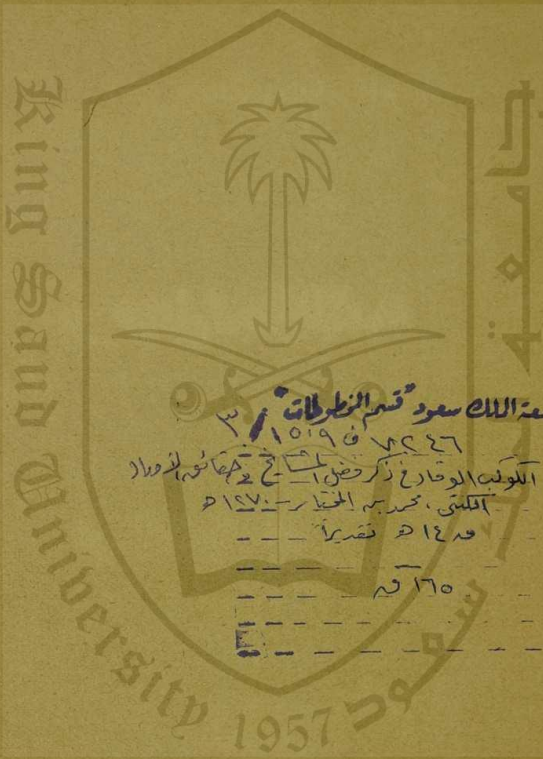 King Saud University
جامعة الملك سعود
1957
عة الملك سعود "قسم المخطوطات"
٧٢٤٦ ف ١٥١٩ / ٣
الكوكب الوقاد في ذكر فضل المشايخ وحقائق الأوراد
الكنتي، محمد بن المختار - ١٢٧٠ هـ
ق ١٤ هـ تقديراً
١٦٥ ق